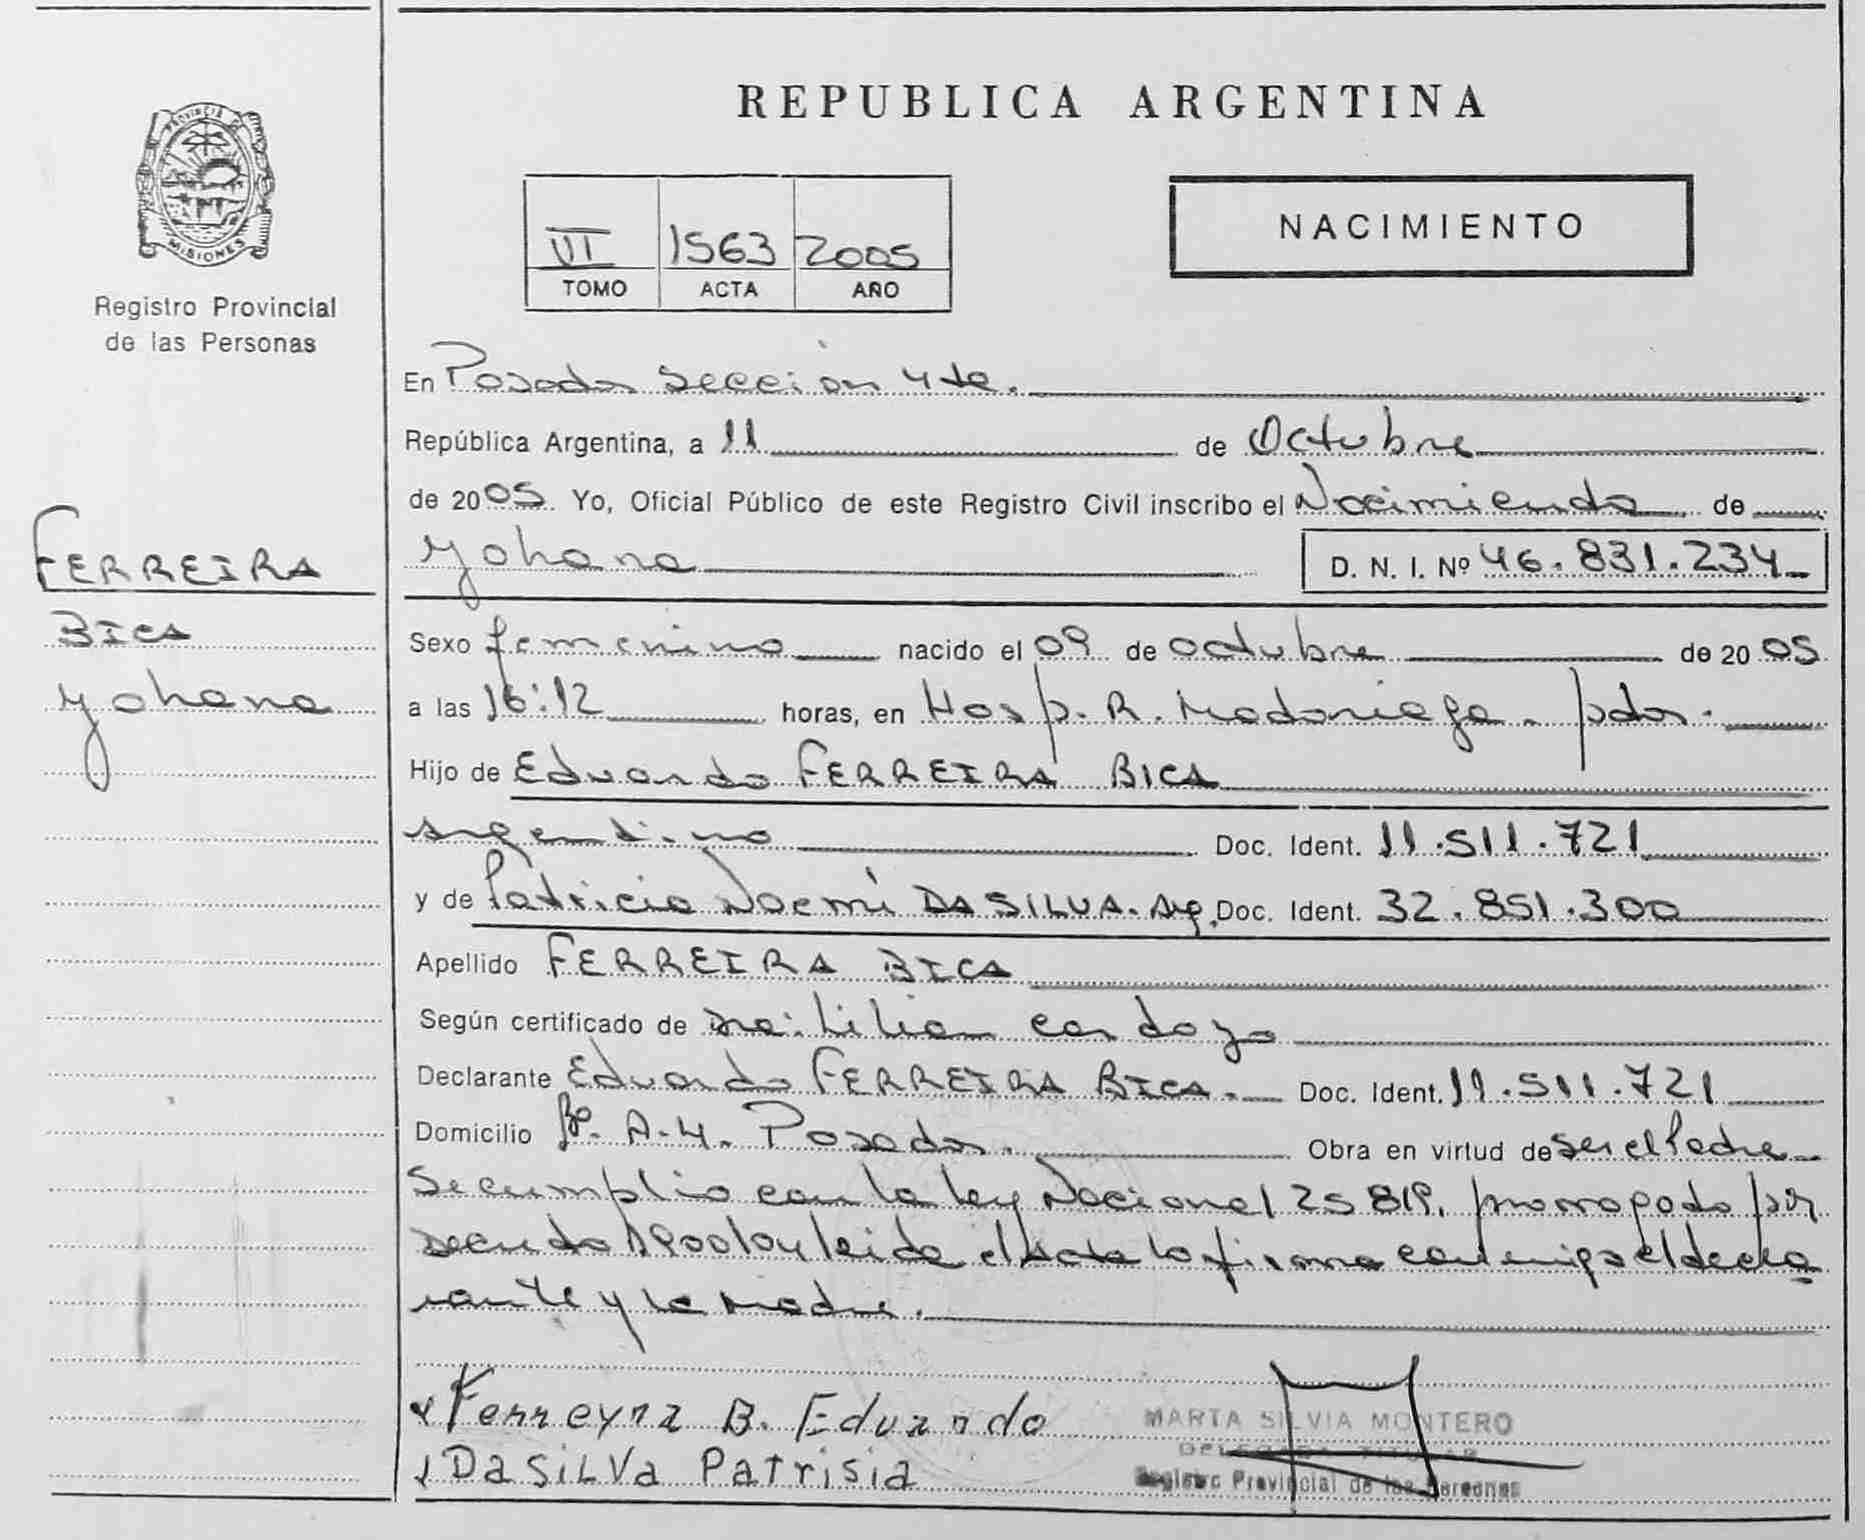 PROVINCIA DE
MISIONES
Registro Provincial
de las Personas
FERREIRA
BICA
Yohana
REPUBLICA ARGENTINA
VI 1563 2005
TOMO ACTA AÑO
NACIMIENTO
En Posadas Sección 4ta.
República Argentina, a 11 de Octubre
de 2005 Yo, Oficial Público de este Registro Civil inscribo el Nacimiento de
Yohana D. N. I. Nº 46.831.234
Sexo femenino nacido el 09 de octubre de 2005
a las 16:12 horas, en Hosp. R. Madariaga - pdas.
Hijo de Eduardo FERREIRA BICA
argentino Doc. Ident. 11.511.721
y de Patricia Noemí DA SILVA. Arg. Doc. Ident. 32.851.300
Apellido FERREIRA BICA
Según certificado de Dra: Lilian Cardozo
Declarante Eduardo FERREIRA BICA. Doc. Ident. 11.511.721
Domicilio Bº. A-4. Posadas. Obra en virtud de ser el Padre
Se cumplio con la ley Nacional 25 819, prorrogado por
decreto leida el Acta la firma conmigo el decla
rante y la madre.
Ferreyra B. Eduardo
DaSiLVa Patrisia
MARTA SILVIA MONTERO
DELEGADA TITULAR
Registro Provincial de las Personas